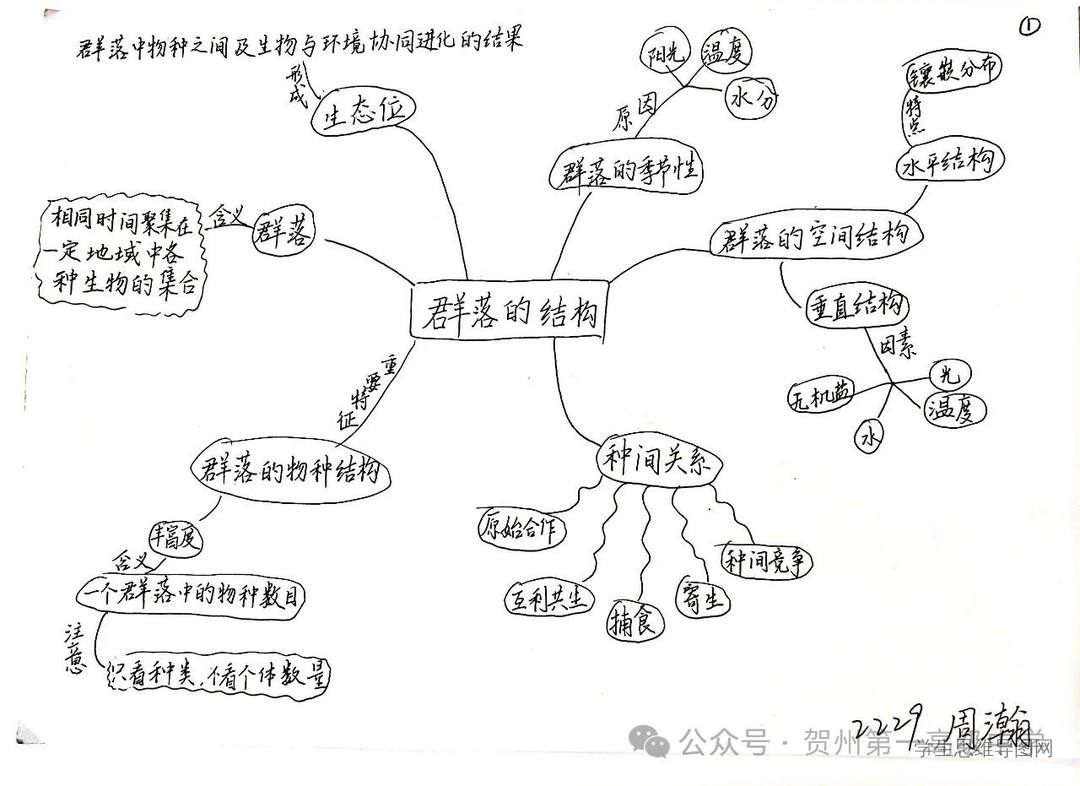 ①
群落中物种之间及生物与环境协同进化的结果
形成
生态位
阳光
温度
水分
原因
群落的季节性
镶嵌分布
特点
水平结构
群落的空间结构
垂直结构
因素
无机盐
光
温度
水
相同时间聚集在
一定地域中各
种生物的集合
含义
群落
群落的结构
重要特征
群落的物种结构
丰富度
含义
一个群落中的物种数目
注意
只看种类,不看个体数量
种间关系
原始合作
互利共生
捕食
寄生
种间竞争
2229 周瀚
公众号·贺州第一高级中学
学生思维导图网